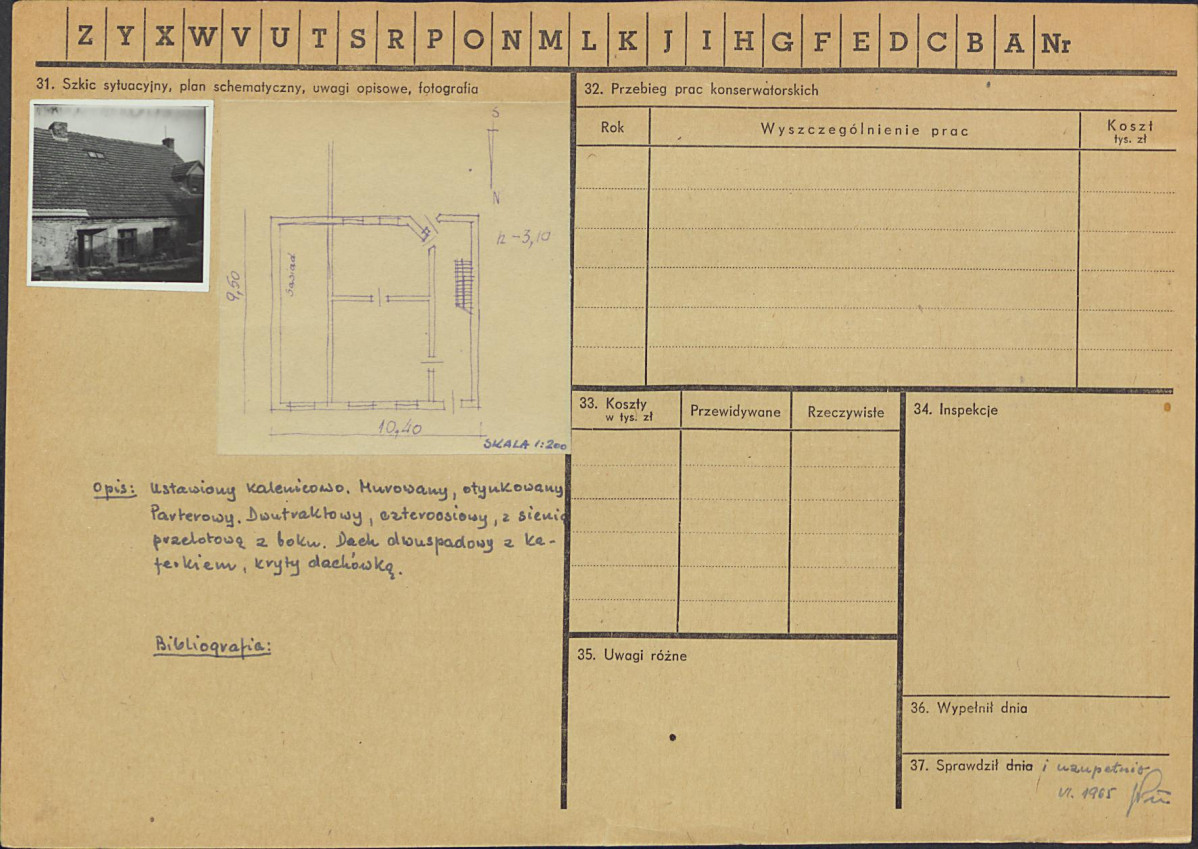 Z Y X W V U T S R P O N M L K J I H G F E D C B A Nr
31. Szkic sytuacyjny, plan schematyczny, uwagi opisowe, fotografia
S
N
h-3,10
9,50
Sąsiad
10,40
SKALA 1:200
Opis: Ustawiony kalenicowo. Murowany, otynkowany
Parterowy. Dwutraktowy, czteroosiowy, z sienią
przelotową z boku. Dach dwuspadowy z ka-
ferkiem, kryty dachówką.
Bibliografia:
32. Przebieg prac konserwatorskich
Rok
Wyszczególnienie prac
Koszt
tys. zł
33. Koszty
w tys. zł
Przewidywane
Rzeczywiste
34. Inspekcje
35. Uwagi różne
36. Wypełnił dnia
37. Sprawdził dnia i uzupełnił
VI. 1965